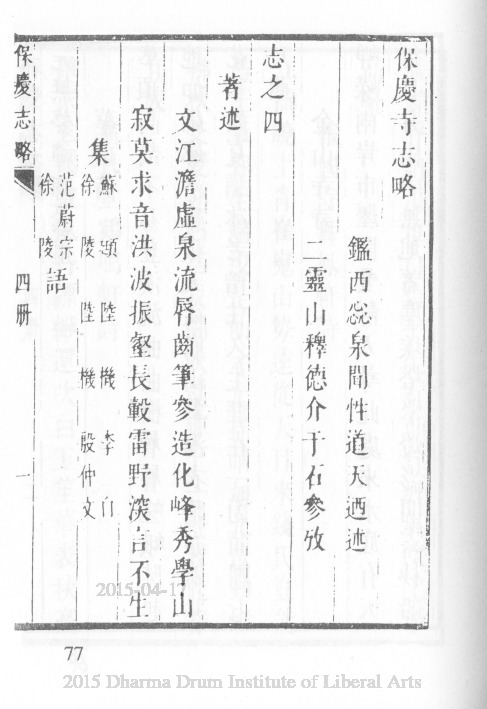 保慶寺志略
鑑西惢泉聞性道天迺述
二靈山釋德介于石參攷
志之四
著述
文江澹虛泉流唇齒筆參造化峰秀學山
寂莫求音洪波振壑長轂雷野深言不生
集
蘇頲 陸機 李白
徐陵 陸機 殷仲文
范蔚宗
徐陵
語
保慶志略 四册 一
2015-04-17
77
2015 Dharma Drum Institute of Liberal Arts